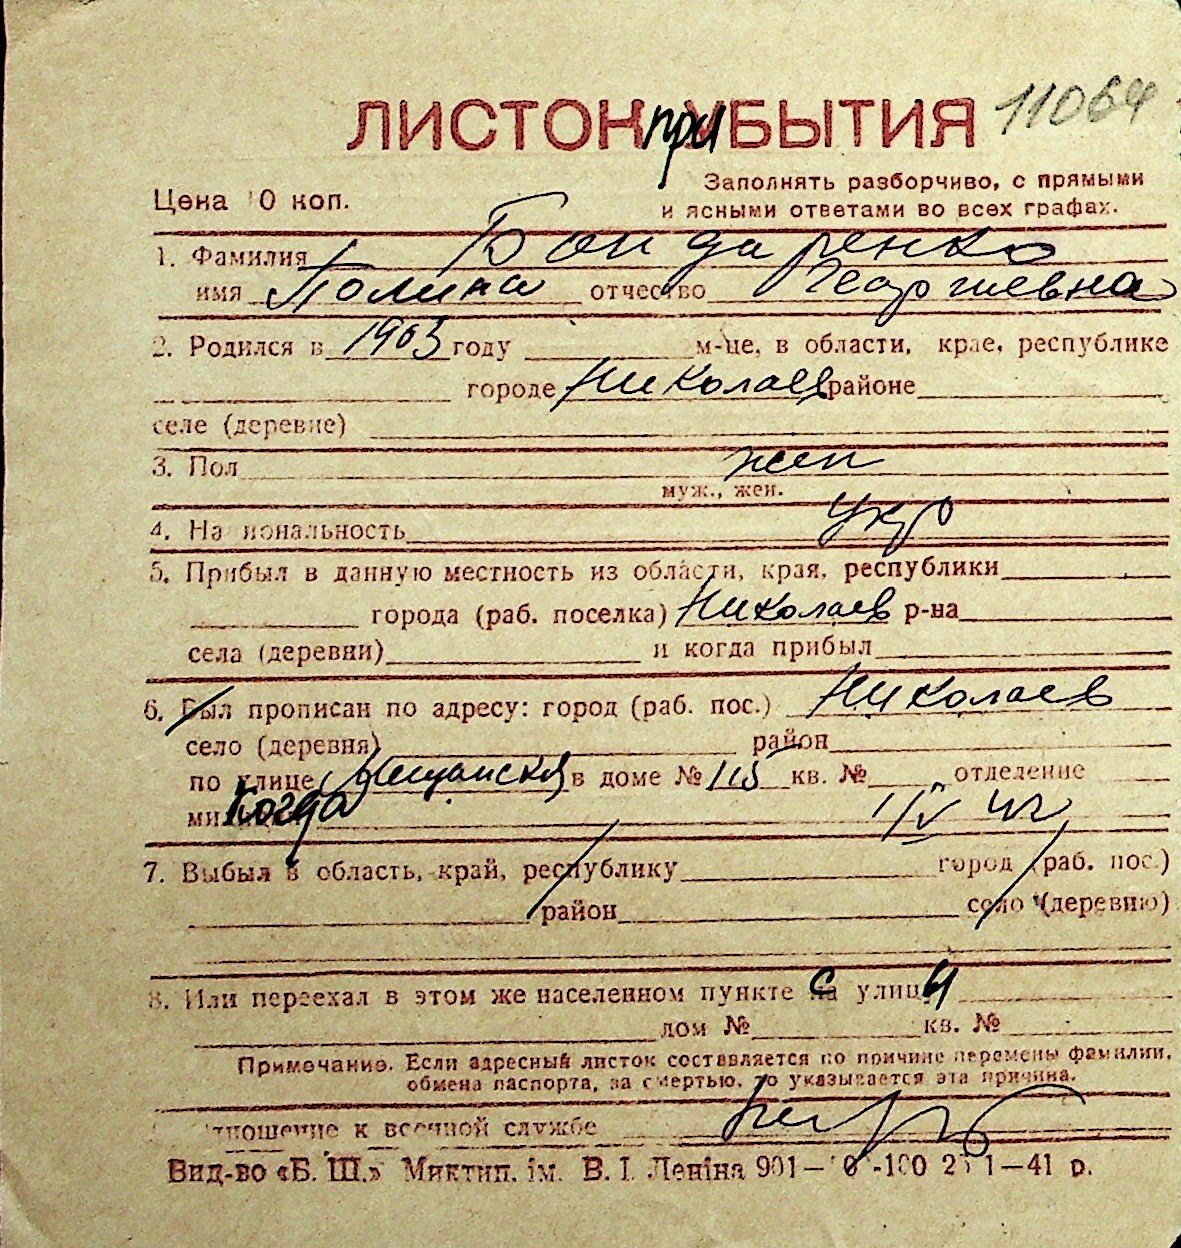 ЛИСТОК при УБЫТИЯ 11064
Цена 0 коп.
Заполнять разборчиво, с прямыми
и ясными ответами во всех графах.
1. Фамилия Бондаренко
имя Полина отчество Георгиевна
2. Родился в 1903 году м-це, в области, крае, республике
городе Николаев районе
селе (деревне)
3. Пол жен
муж., жен.
4. На иональность укр
5. Прибыл в данную местность из области, края, республики
города (раб. поселка) Николаев р-на
села (деревни) и когда прибыл
6. Был прописан по адресу: город (раб. пос.) Николаев
село (деревня) район
по улице Мещанская в доме № 115 кв. № отделение
ми Когда 1/IV 42
7. Выбыл в область, край, республику город (раб. пос.)
район село (деревню)
8. Или переехал в этом же населенном пункте с на улицы
дом № кв. №
Примечание. Если адресный листок составляется по причине перемены фамилии,
обмена паспорта, за смертью, то указывается эта причина.
тношение к военной службе
Вид-во «Б. Ш.» Миктип. ім. В. І. Леніна 901— 0 -100 2 1—41 р.